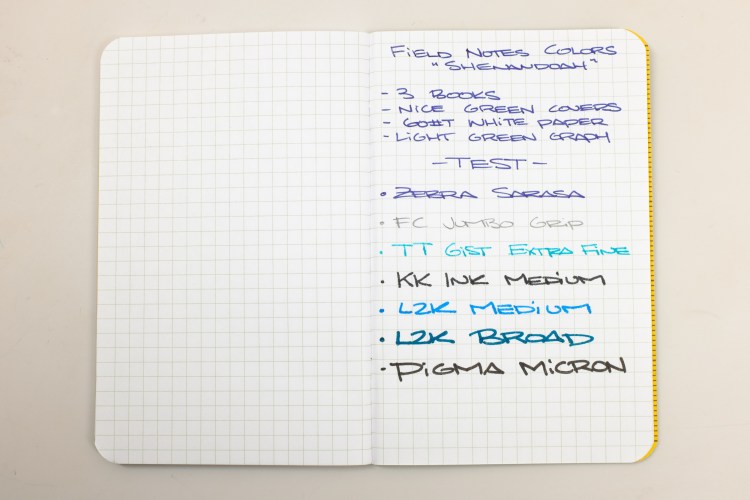 FIELD NOTES COLORS
"SHENANDOAH"
- 3 BOOKS
- NICE GREEN COVERS
- 60#T WHITE PAPER
- LIGHT GREEN GRAPH
- TEST -
• ZEBRA SARASA
• FC JUMBO GRIP
• TT GIST EXTRA FINE
• KK INK MEDIUM
• L2K MEDIUM
• L2K BROAD
• PIGMA MICRON